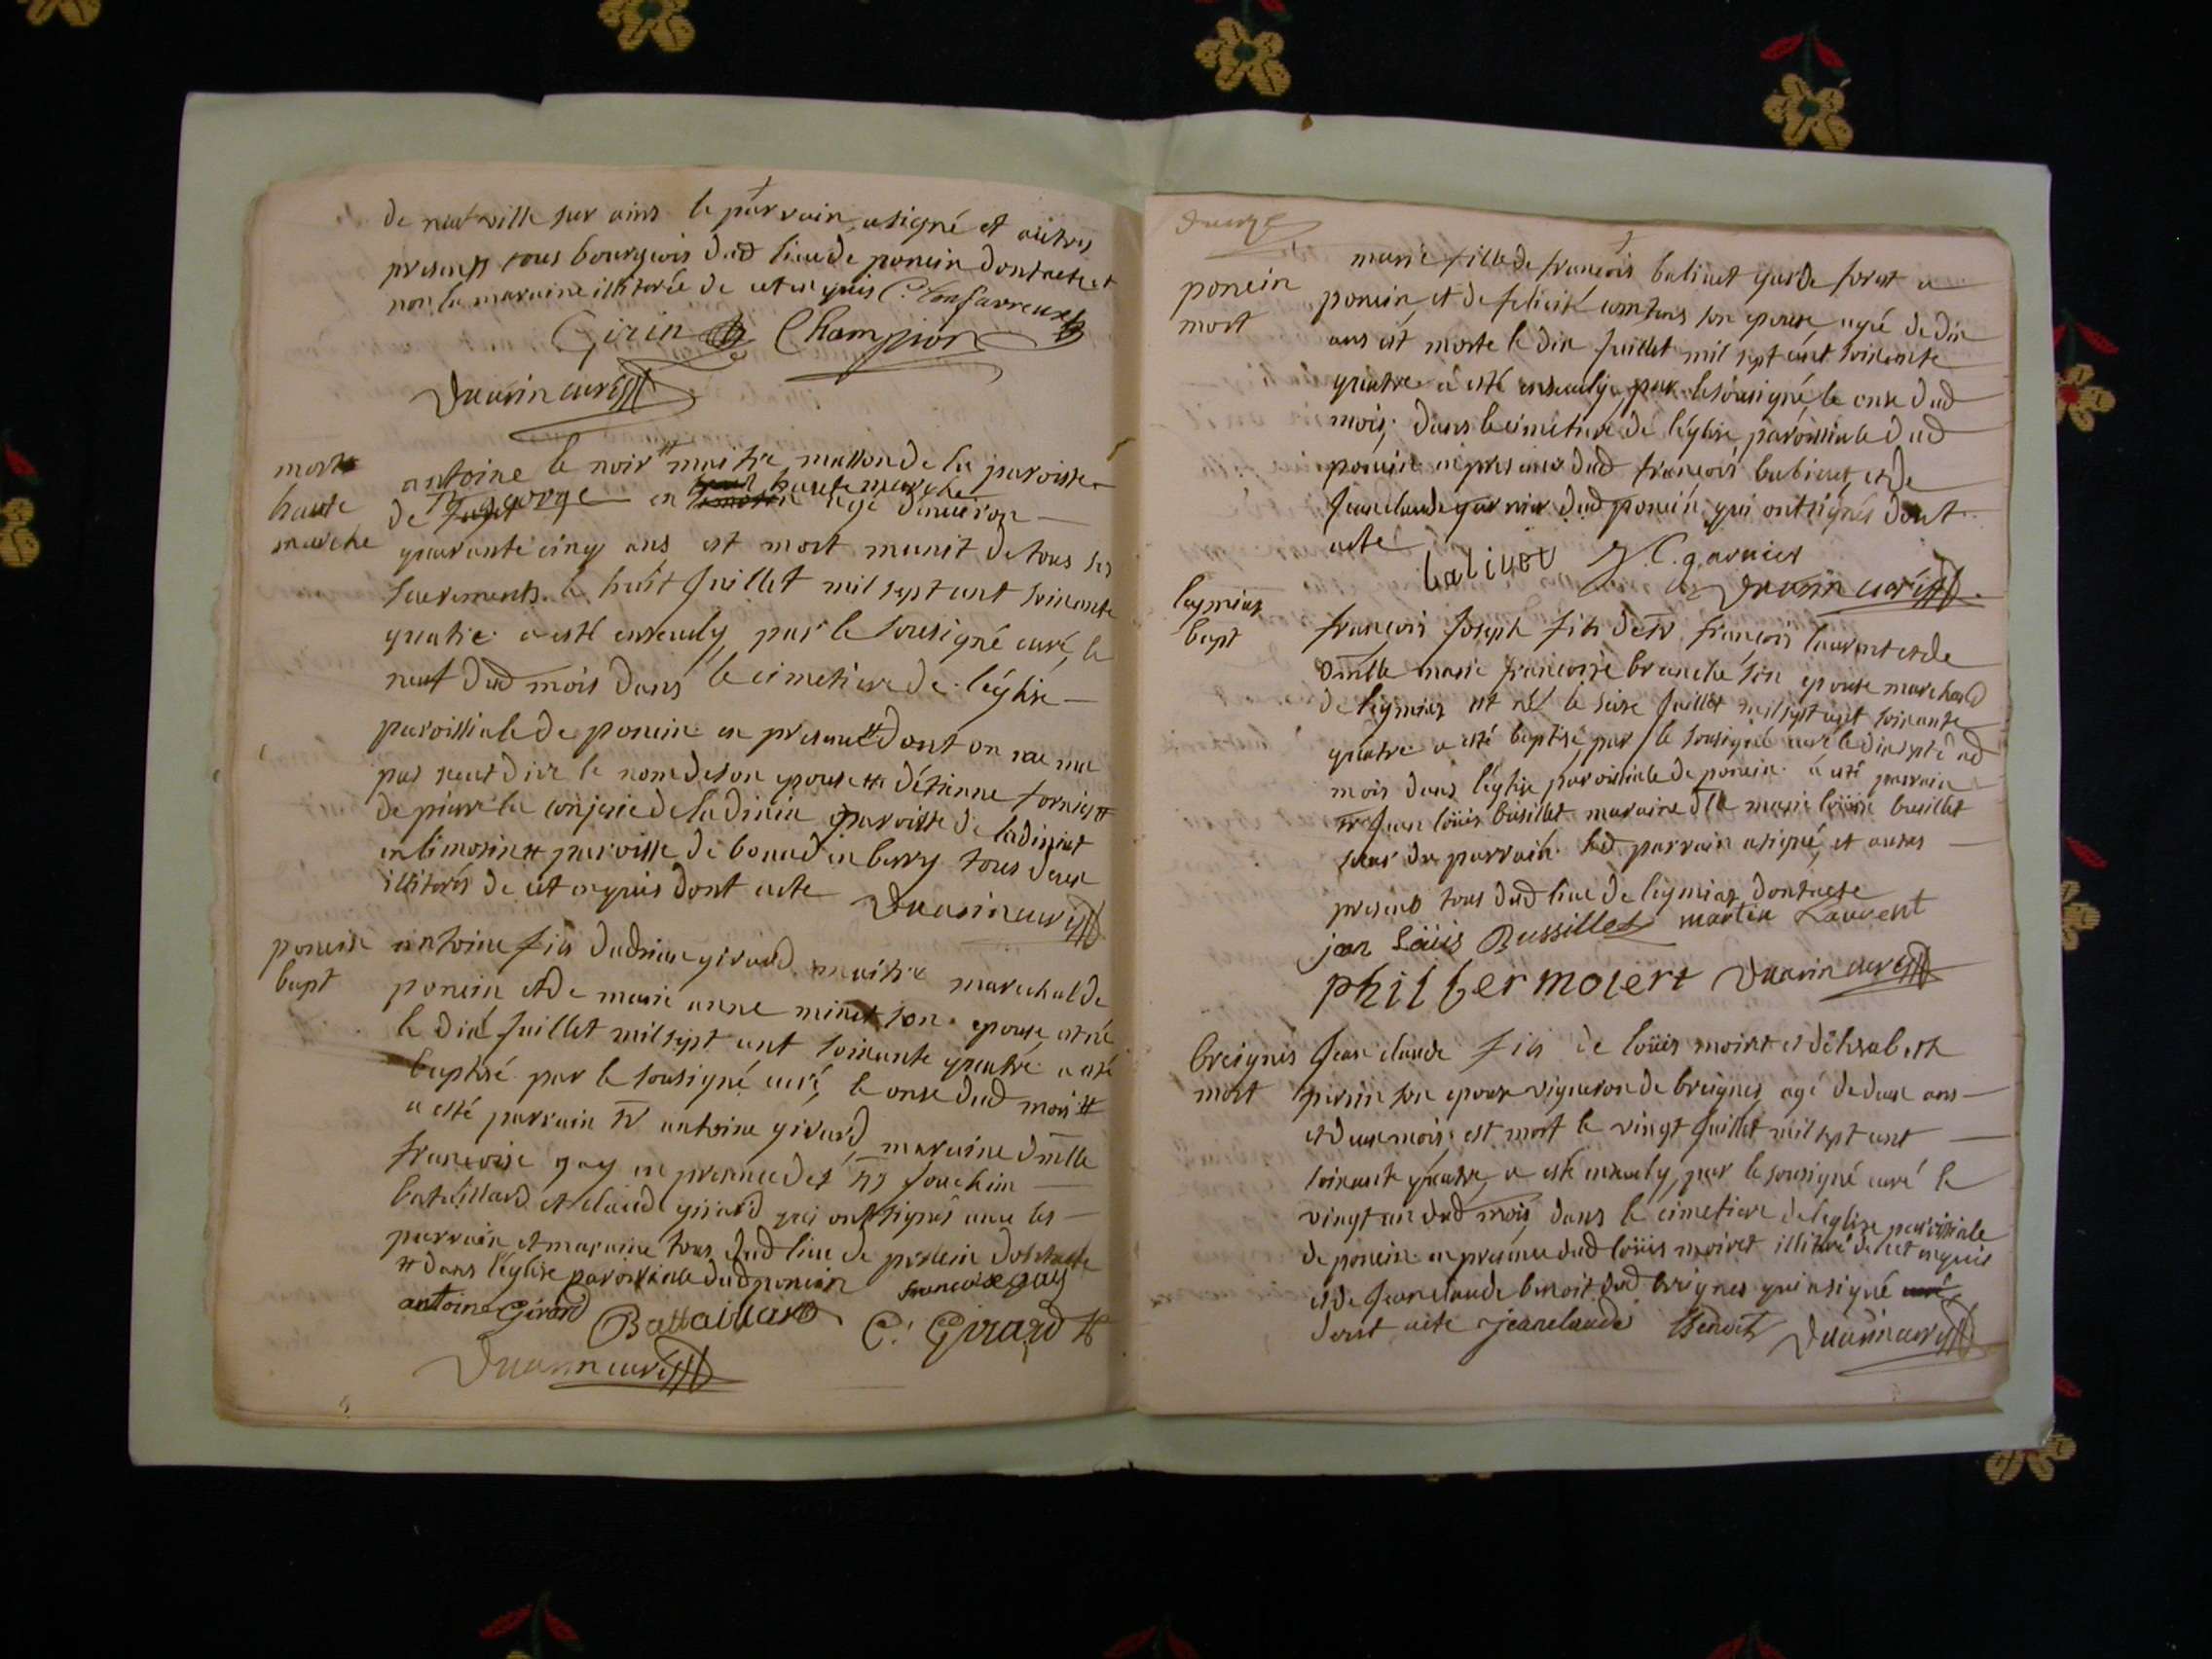 de neufville sur ains le parrain a signé et autres
presents tous bourgeois dud lieu de poncin dont acte et
non la maraine illiterée de ce enquis
Girin Champion
curé
mort
haute
marche
antoine le noir maitre masson de la paroisse
de St george en haute marche agé denviron
quarante cinq ans est mort munit de tous ses
sacrements le huit juillet mil sept cent soixante
quatre a esté ensevely par le sousigné curé, le
neuf dud mois dans le cimetiere de l'église
paroissiale de poncin en presence dont on na
pas sceut dire le nom de son epouse detienne
de pierre la de ladinia paroisse de
en limosin paroisse de en berry tous deux
illiterés de ce enquis dont acte curé
poncin
bapt
antoine fils dadrian girard maitre marechal de
poncin et de marie anne minet son epouse, est né
le dix juillet mil sept cent soixante quatre a esté
baptisé par le sousigné curé, le onze dud mois
a esté parrain Sr antoine girard, maraine dmlle
francoise gay en presence des Srs joachim
bataillard et claude girard qui ont signés avec les
parrain et maraine tous dud lieu de poncin dont acte
dans l'église paroissiale dud poncin francoise gay
antoine Girard Bataillard C. Girard
curé
poncin
mort
marie fille de francois balivet garde forest a
poncin, et de felicité son epouse, agée de dix
ans est morte le dix juillet mil sept cent soixante
quatre a esté ensevelye par le sousigné le onze dud
mois, dans le cimetiere de l'église paroissiale dud
poncin en presence dud françois balivet, et de
jean claude garnier dud poncin qui ont signés dont
acte balivet J. C. garnier
curé
leymiaz
bapt
françois joseph fils de Sr françois laurent et de
dmlle marie francoise branche son epouse marchand
de leymiaz est né le seize juillet mil sept cent soixante
quatre a esté baptisé par le sousigné curé le dix sept dud
mois dans l'église paroissiale de poncin a esté parrain
Sr jean loüis busillet maraine dlle marie loüise busillet
soeur du parrain led parrain a signé, et autres
presens tous dud lieu de leymiaz dont acte
jean Loüis Bussillet martin Laurent
curé
breignes
mort
jean claude fils de loüis moiret et d'elisabeth
perrin son epouse vigneron de breignes, agé de deux ans
et deux mois, est mort le vingt juillet mil sept cent
soixante quatre, a esté ensevely, par le sousigné curé le
vingt un dud mois dans le cimetiere de l'eglise paroissiale
de poncin en presence dud loüis moiret illiteré de ce enquis
et de jean claude benoit dud breignes qui a signé
dont acte jean claude Benoit curé